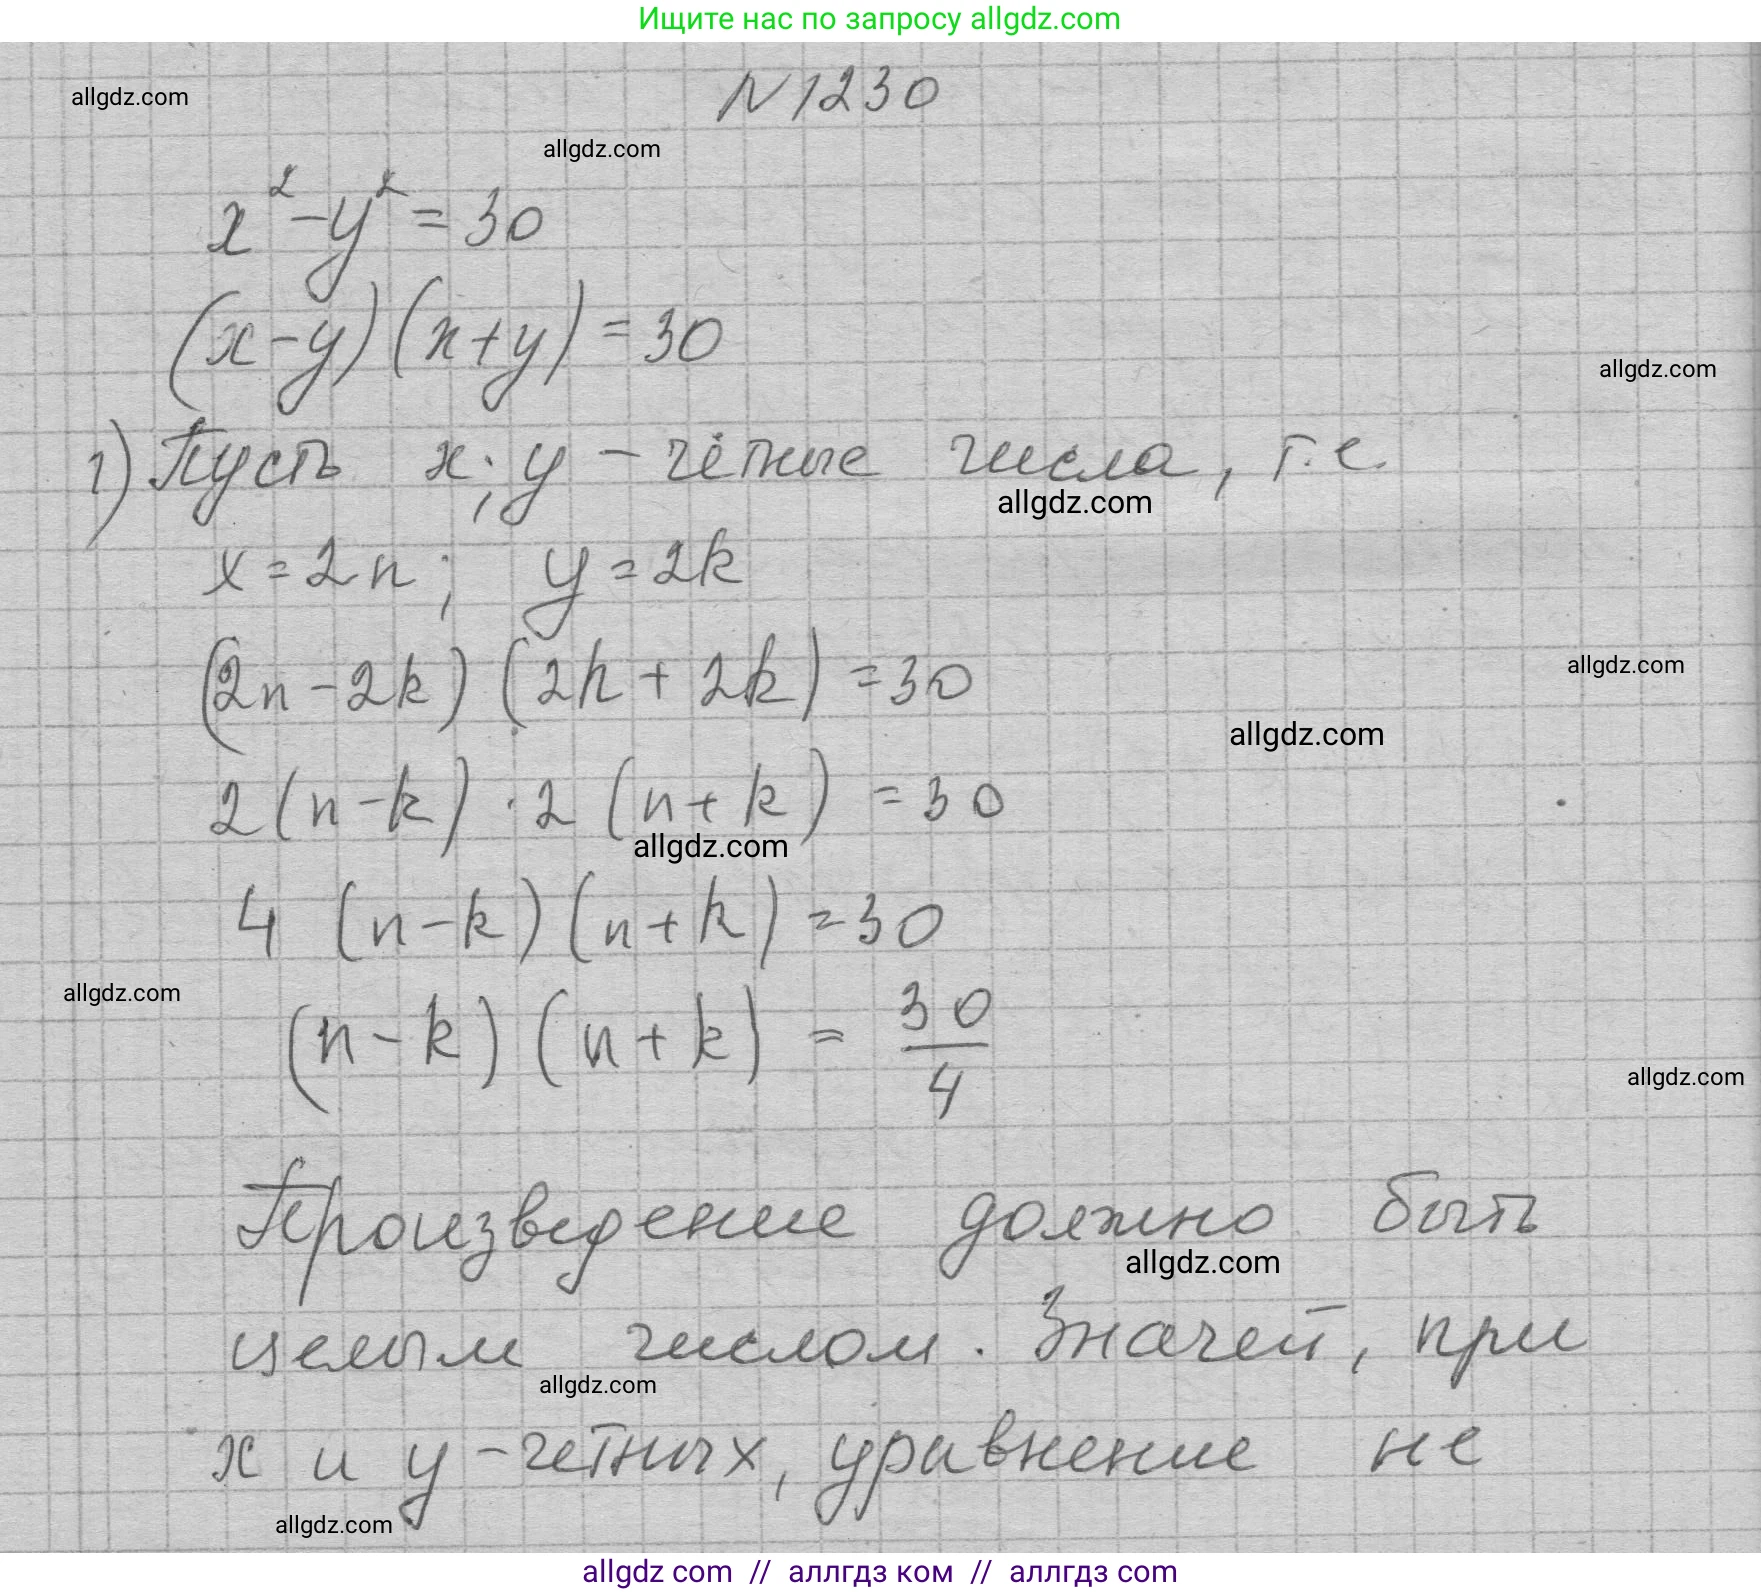 Ищите нас по запросу allgdz.com
N 1230
allgdz.com
allgdz.com
x² - y² = 30
(x - y)(x + y) = 30
allgdz.com
1) Пусть x; y - чётные числа, т.е.
allgdz.com
x = 2n; y = 2k
(2n - 2k)(2n + 2k) = 30
allgdz.com
allgdz.com
2(n - k) · 2(n + k) = 30
allgdz.com
4 (n - k)(n + k) = 30
allgdz.com
(n - k)(n + k) = 30/4
allgdz.com
Произведение должно быть
allgdz.com
целым числом. Значит, при
allgdz.com
x и y - четных, уравнение не
allgdz.com
allgdz com // аллгдз ком // аллгдз com